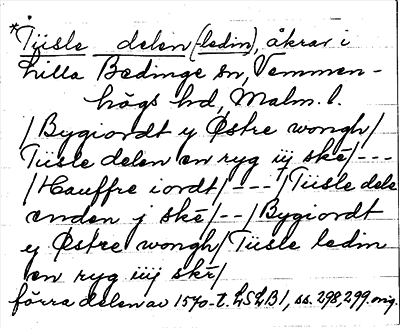 *Tüsle delen (-ledin), åkrar i
Lilla Bedinge sn, Vemmen-
högs hd, Malm. l.
/Bygiordt y Østre wongh/
Tüsle delen en ryg iij ske/---
/Hauffre iordt/---/Tüsle dele
enden j ske/--/Bygiordt
y Østre wongh/Tüsle ledin
en ryg iiij ske/
förra delen av 1570-t. LSLB1, ss. 298, 299. orig.